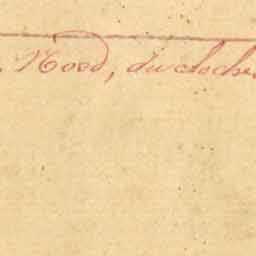 Nord, du cloche